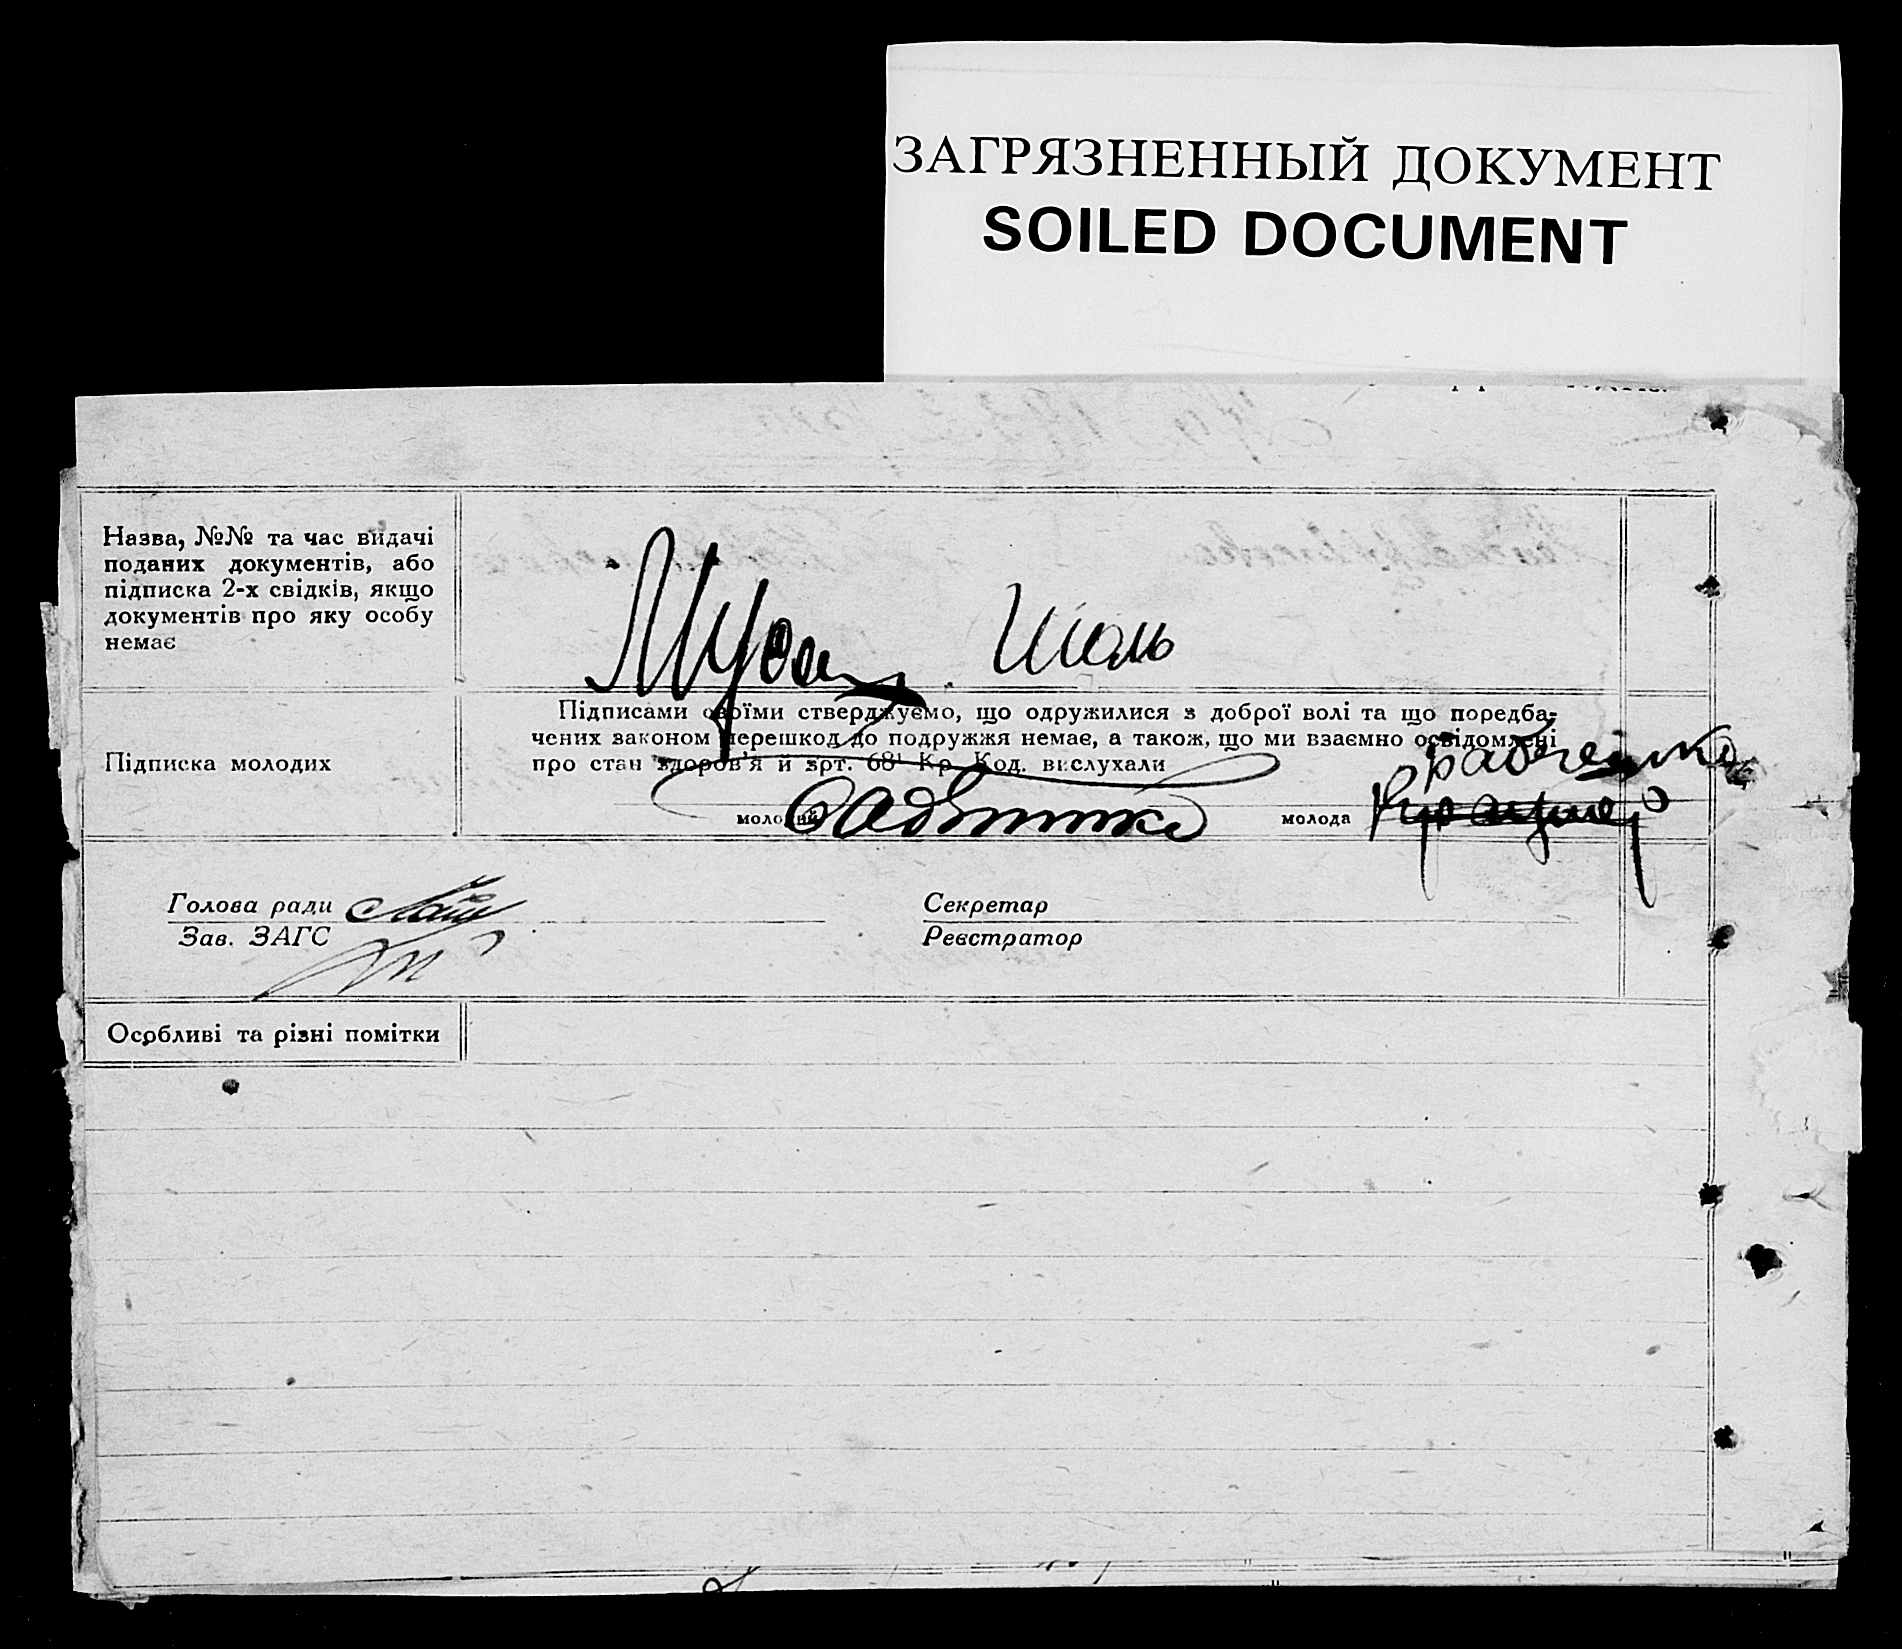 ЗАГРЯЗНЕННЫЙ ДОКУМЕНТ
SOILED DOCUMENT
Назва, №№ та час видачі
поданих документів, або
підписка 2-х свідків, якщо
документів про яку особу
немає
Шмоль
Підписка молодих
Підписами своїми стверджуємо, що одружилися з доброї волі та що поредба-
чених законом перешкод до подружжя немає, а також, що ми взаємно освідомлені
про стан здоров'я й арт. 68¹ Кр. Код. вислухали
молодий
молода
Голова ради
Зав. ЗАГС
Секретар
Реєстратор
Особливі та різні помітки